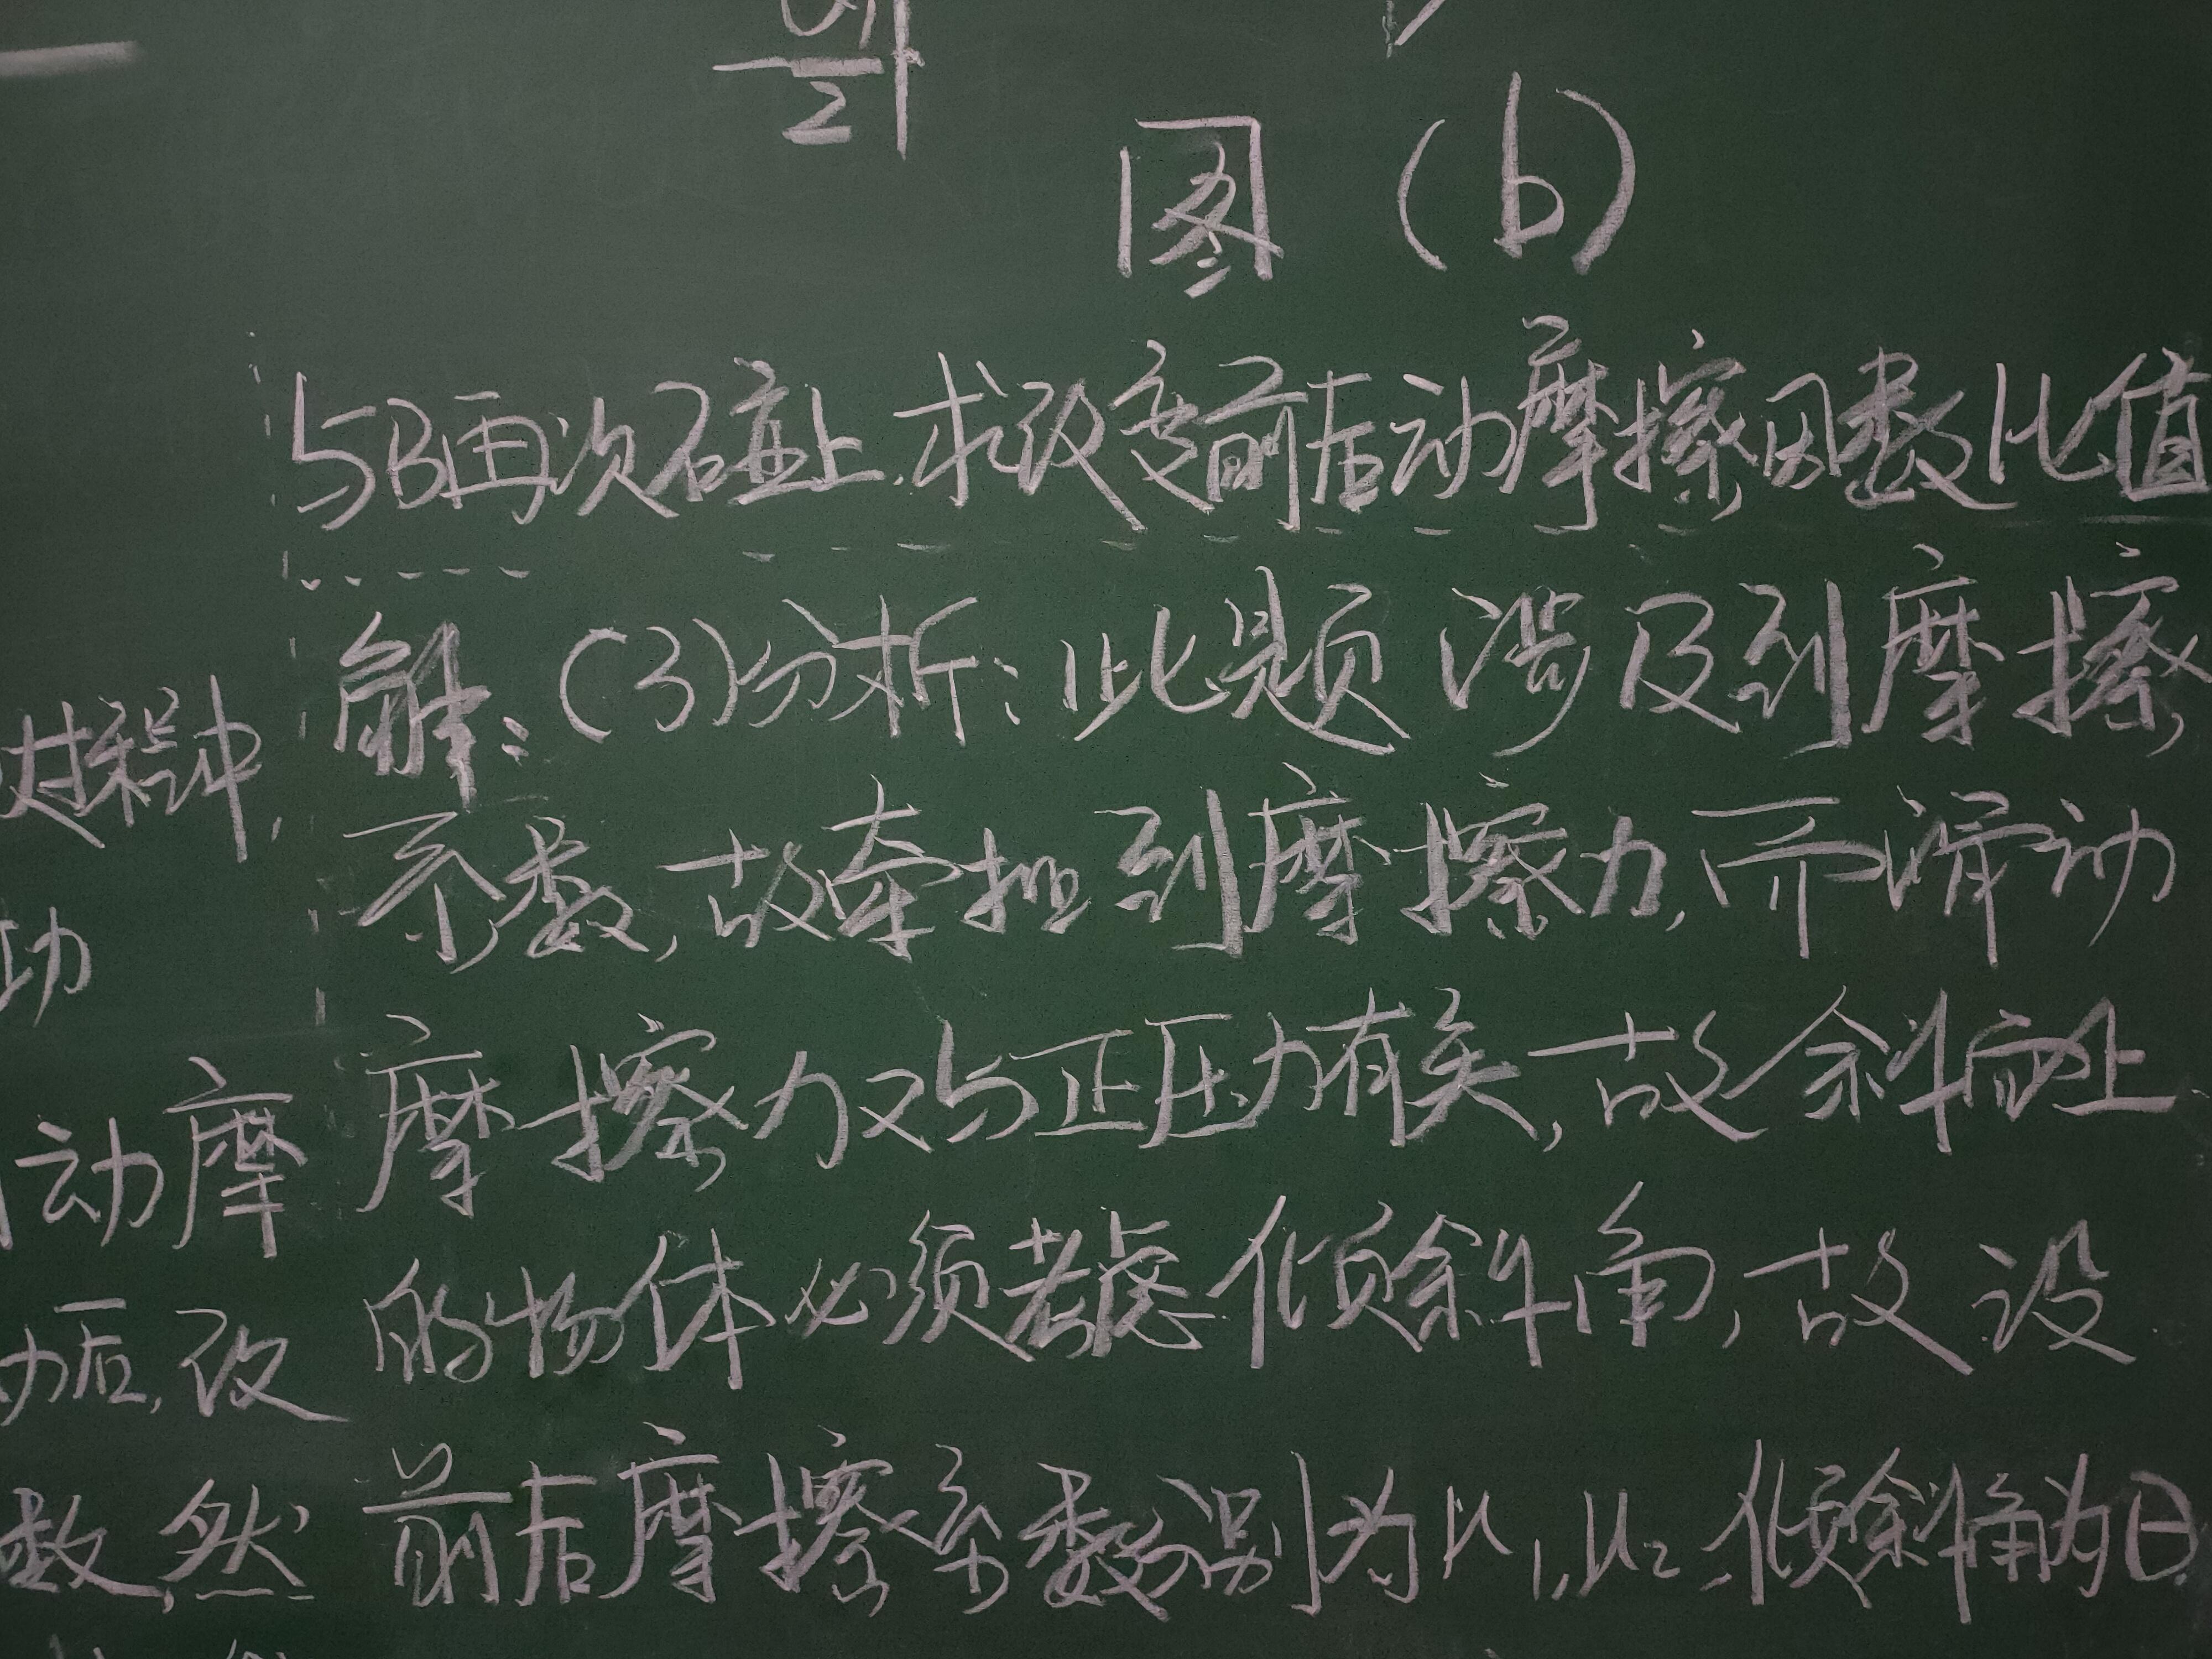 v₁
2
图 (b)
与B再次碰上.求改变前后动摩擦因数比值
解:(3)分析:此题涉及到摩擦
系数,故牵扯到摩擦力,而滑动
摩擦力又与正压力有关,故斜面上
的物体必须考虑倾斜角,故设
前后摩擦系数分别为μ₁,μ₂.倾斜角为θ.
过程中,
功
动摩
功后,改
数,然